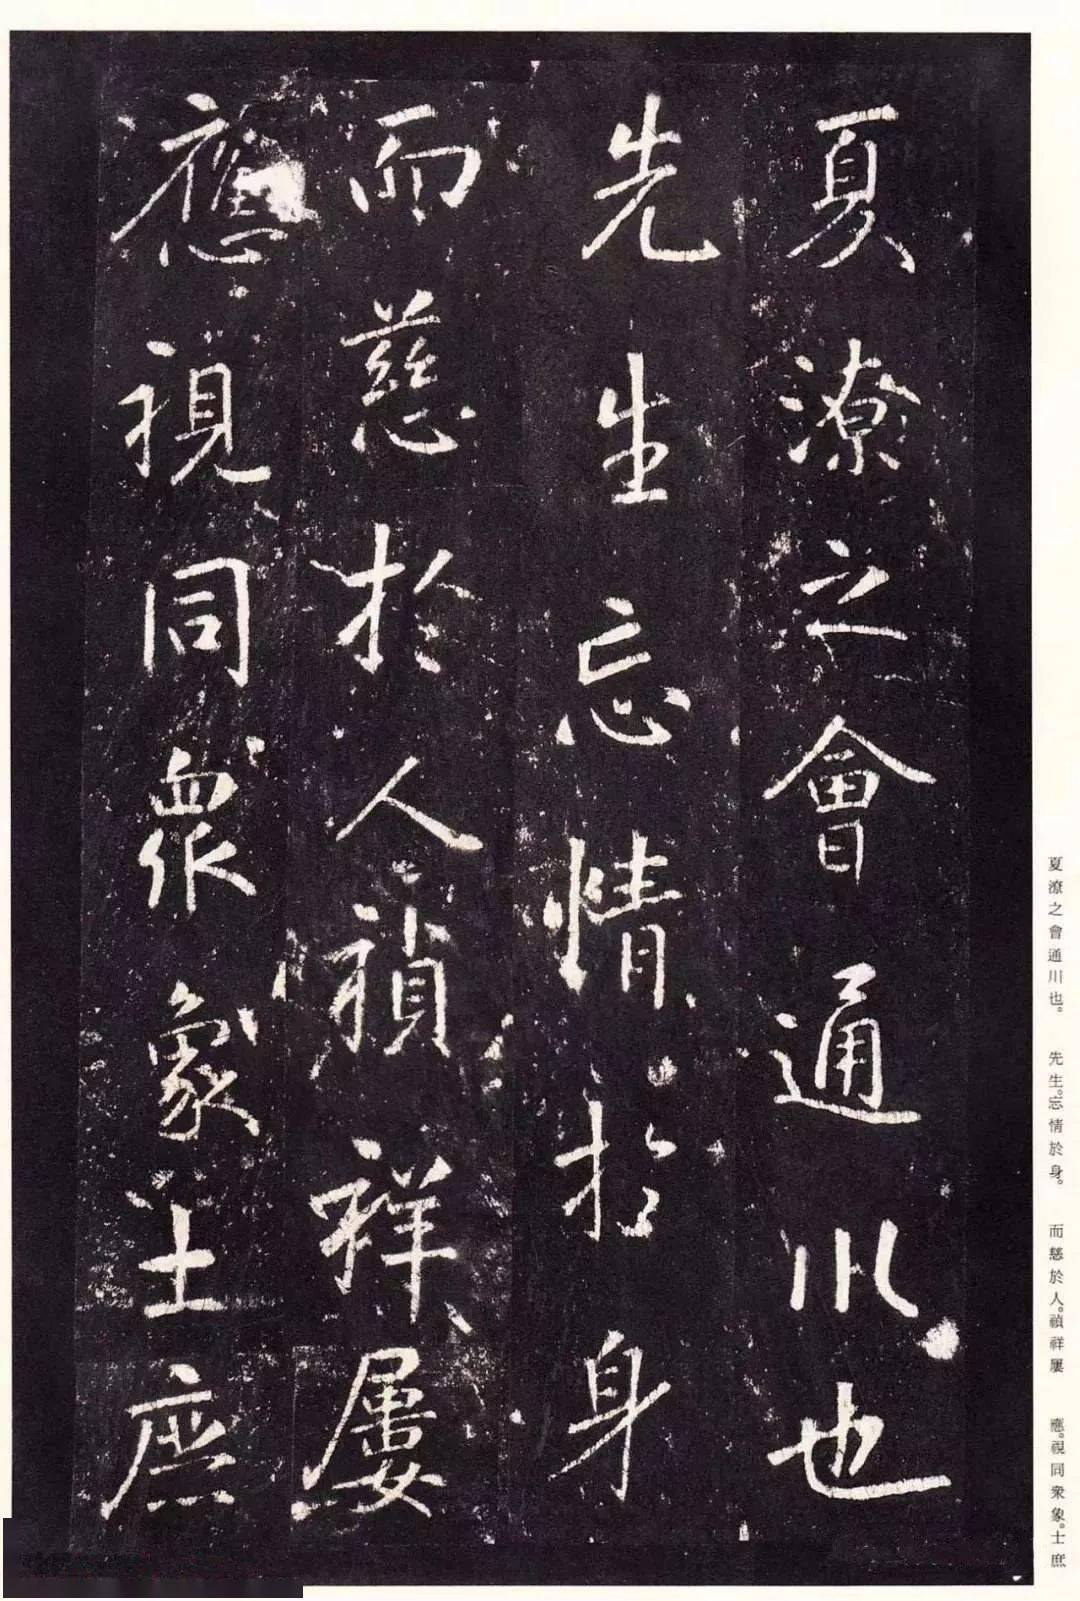 夏潦之會通川也
先生忘情於身
而慈於人禎祥屢
應視同眾象士庶
夏潦之會通川也。 先生。忘情於身。 而慈於人。禎祥屢 應。視同衆象。士庶